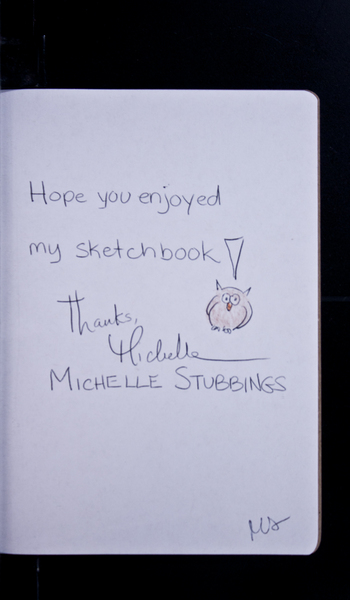 Hope you enjoyed
my sketchbook!
Thanks,
Michelle
MICHELLE STUBBINGS
MS